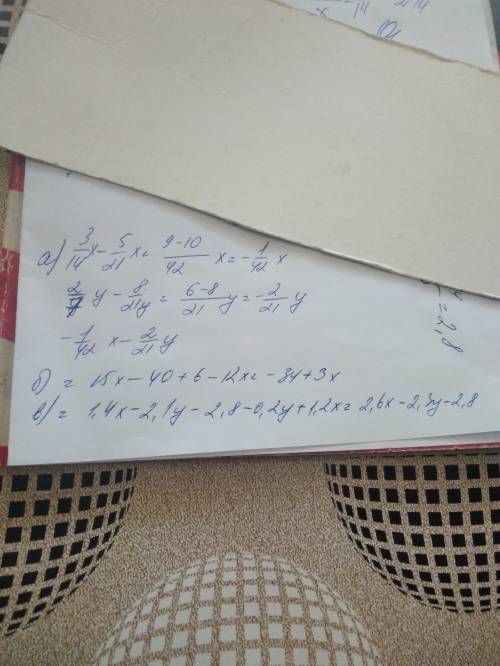 а) 3/14 x - 5/21 x = (9-10)/42 x = - 1/42 x
2/7 y - 8/21 y = (6-8)/21 y = - 2/21 y
- 1/42 x - 2/21 y
б) = 15x - 40 + 6 - 12x = - 34 + 3x
в) = 1,4x - 2,1y - 2,8 - 0,2y + 1,2x = 2,6x - 2,3y - 2,8
= 2,8